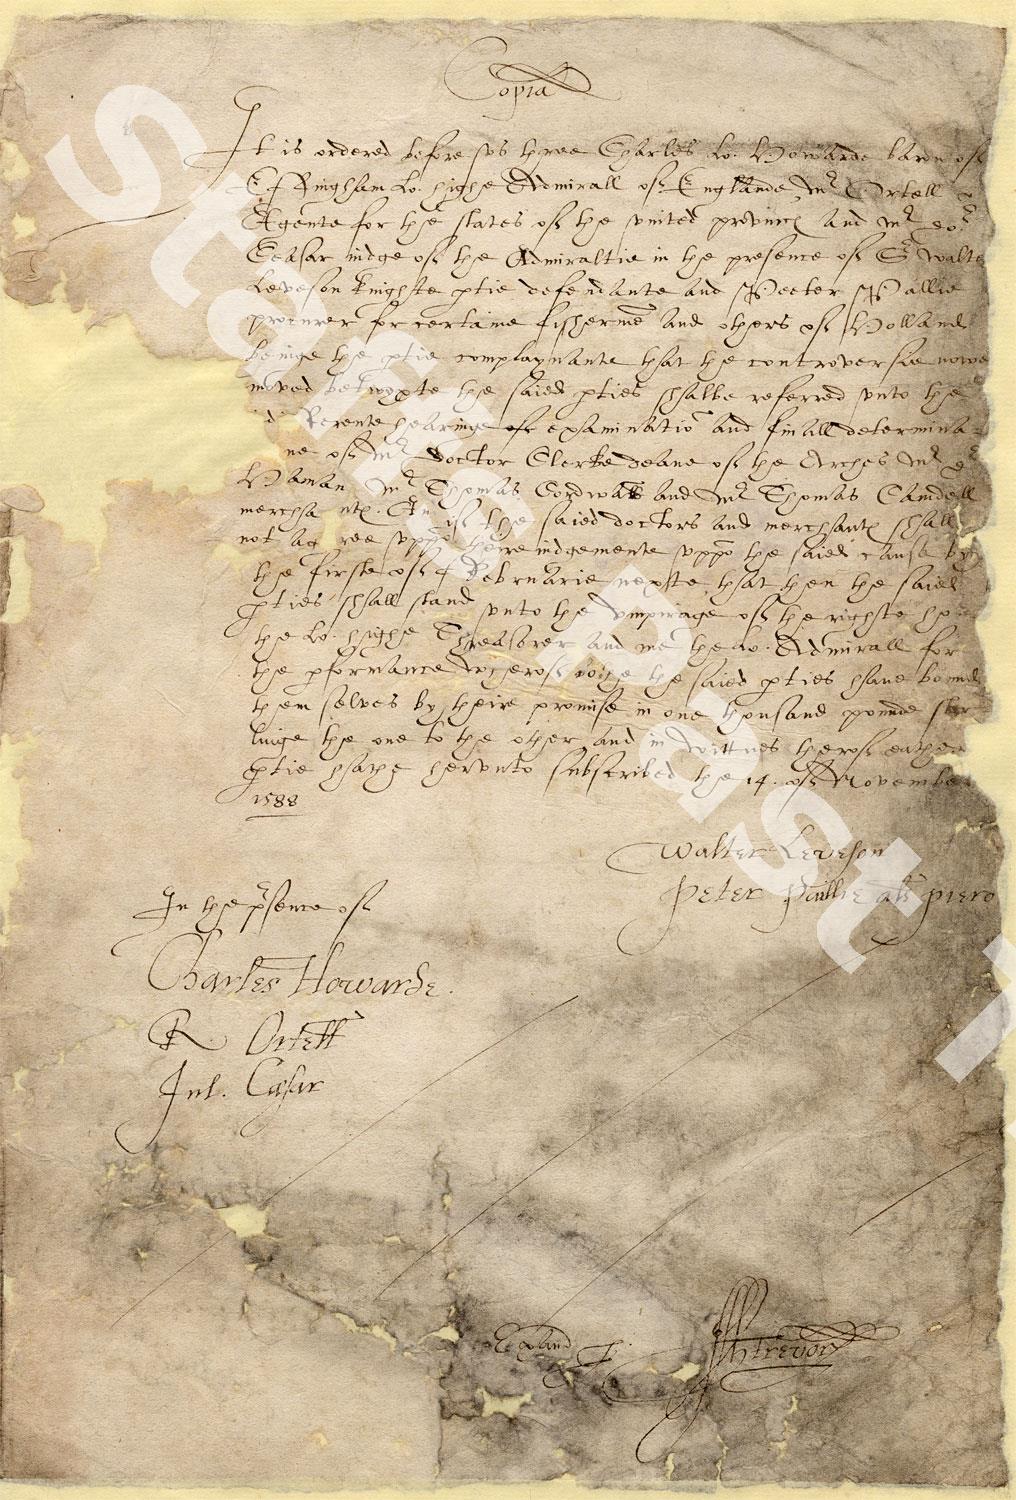 Copia
It is ordered before us three Charles Lo: Howarde baron of
Effingham Lo: highe Admirall of Englande, Mr Ortell
Agente for the states of the united province and Mr
Ceasar iudge of the Admiraltie in the presence of Sr Walter
Leveson knighte ptie defendante and Peeter Pallie
procurer for certaine fisherme and others of Holland
beinge the ptie complaynante that the controversie nowe
moved betwyxte the saied pties shalbe referred unto the
hearinge examinatio and finall determina
ne of Mr doctor Clerke deane of the Arches Mr
Haman Mr Thomas Cordwall and Mr Thomas Camdell
mercha nts. An if the saied doctors and merchants shall
not ag ree uppo theire iudgemente uppo the saied cause by
the firste of Februarie nexte that then the saied
pties shall stand unto the umpirage of the righte ho
the Lo: highe Threasorer and me the Lo: Admirall for
the pformance wherof bothe the saied pties have bound
them selves by theire promise in one thousand pounde ster
linge the one to the other and in wittnes therof eather
ptie hathe herunto subscribed the 14. of November
1588
Walter Leveson
Peter Paillie als piero
In the psence of
Charles Howarde.
R Ortell
Jul. Cæsar
Exand
HTrevor
Stamp Past